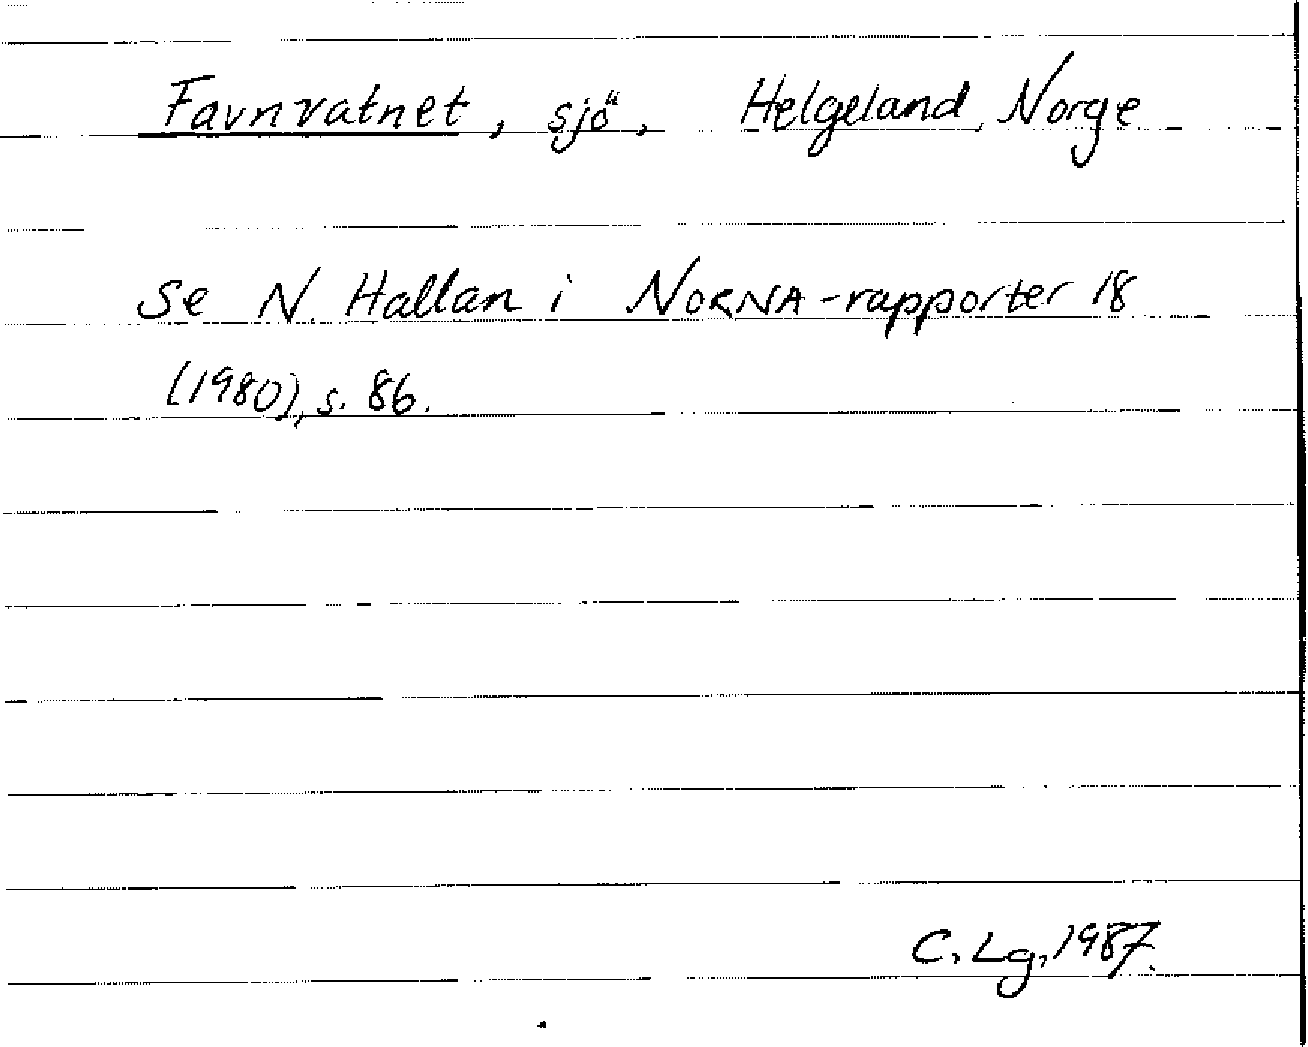 Favnvatnet, sjö, Helgeland, Norge
se N. Hallan i NORNA-rapporter 18
(1980), s. 86.
C. Lg, 1987.